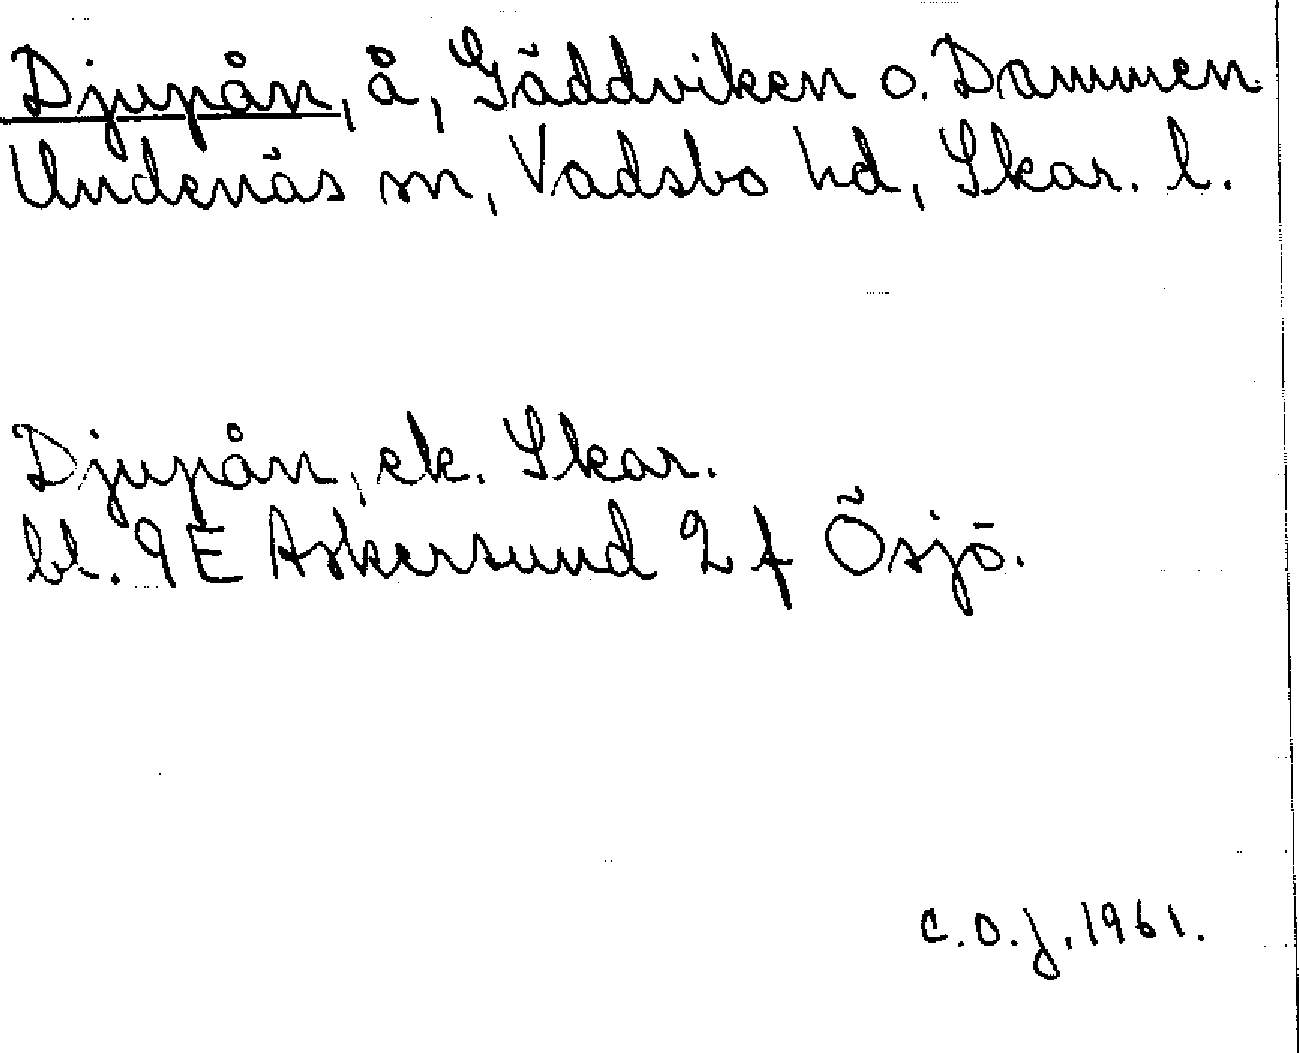 Djupån, å, Gäddviken o. Dammen
Undenäs sn, Vadsbo hd, Skar. l.
Djupån, ek. Skar.
bl. 9E Askersund 2 f Ösjö.
C.O.J. 1961.